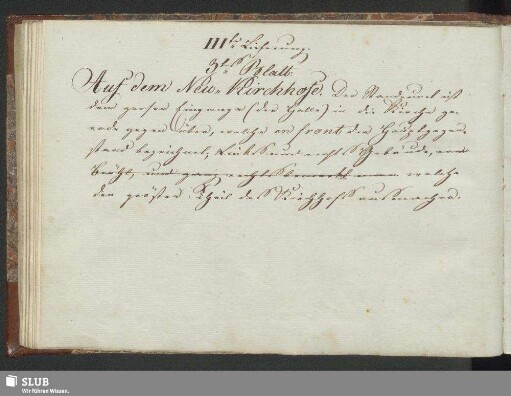 IIIte Lieferung.
3tes Blatt.
Auf dem Neu-Kirchhofe. Der Standpunct ist
dem großen Eingange (der Halle) in die Kirche ge-
rade gegen über, welche en front den Hauptgegen-
stand bezeichnet, Links und rechts Gebäude,
und ganz rechts welche
den größten Theil des Kirchhofs ausmachen.
SLUB
Wir führen Wissen.